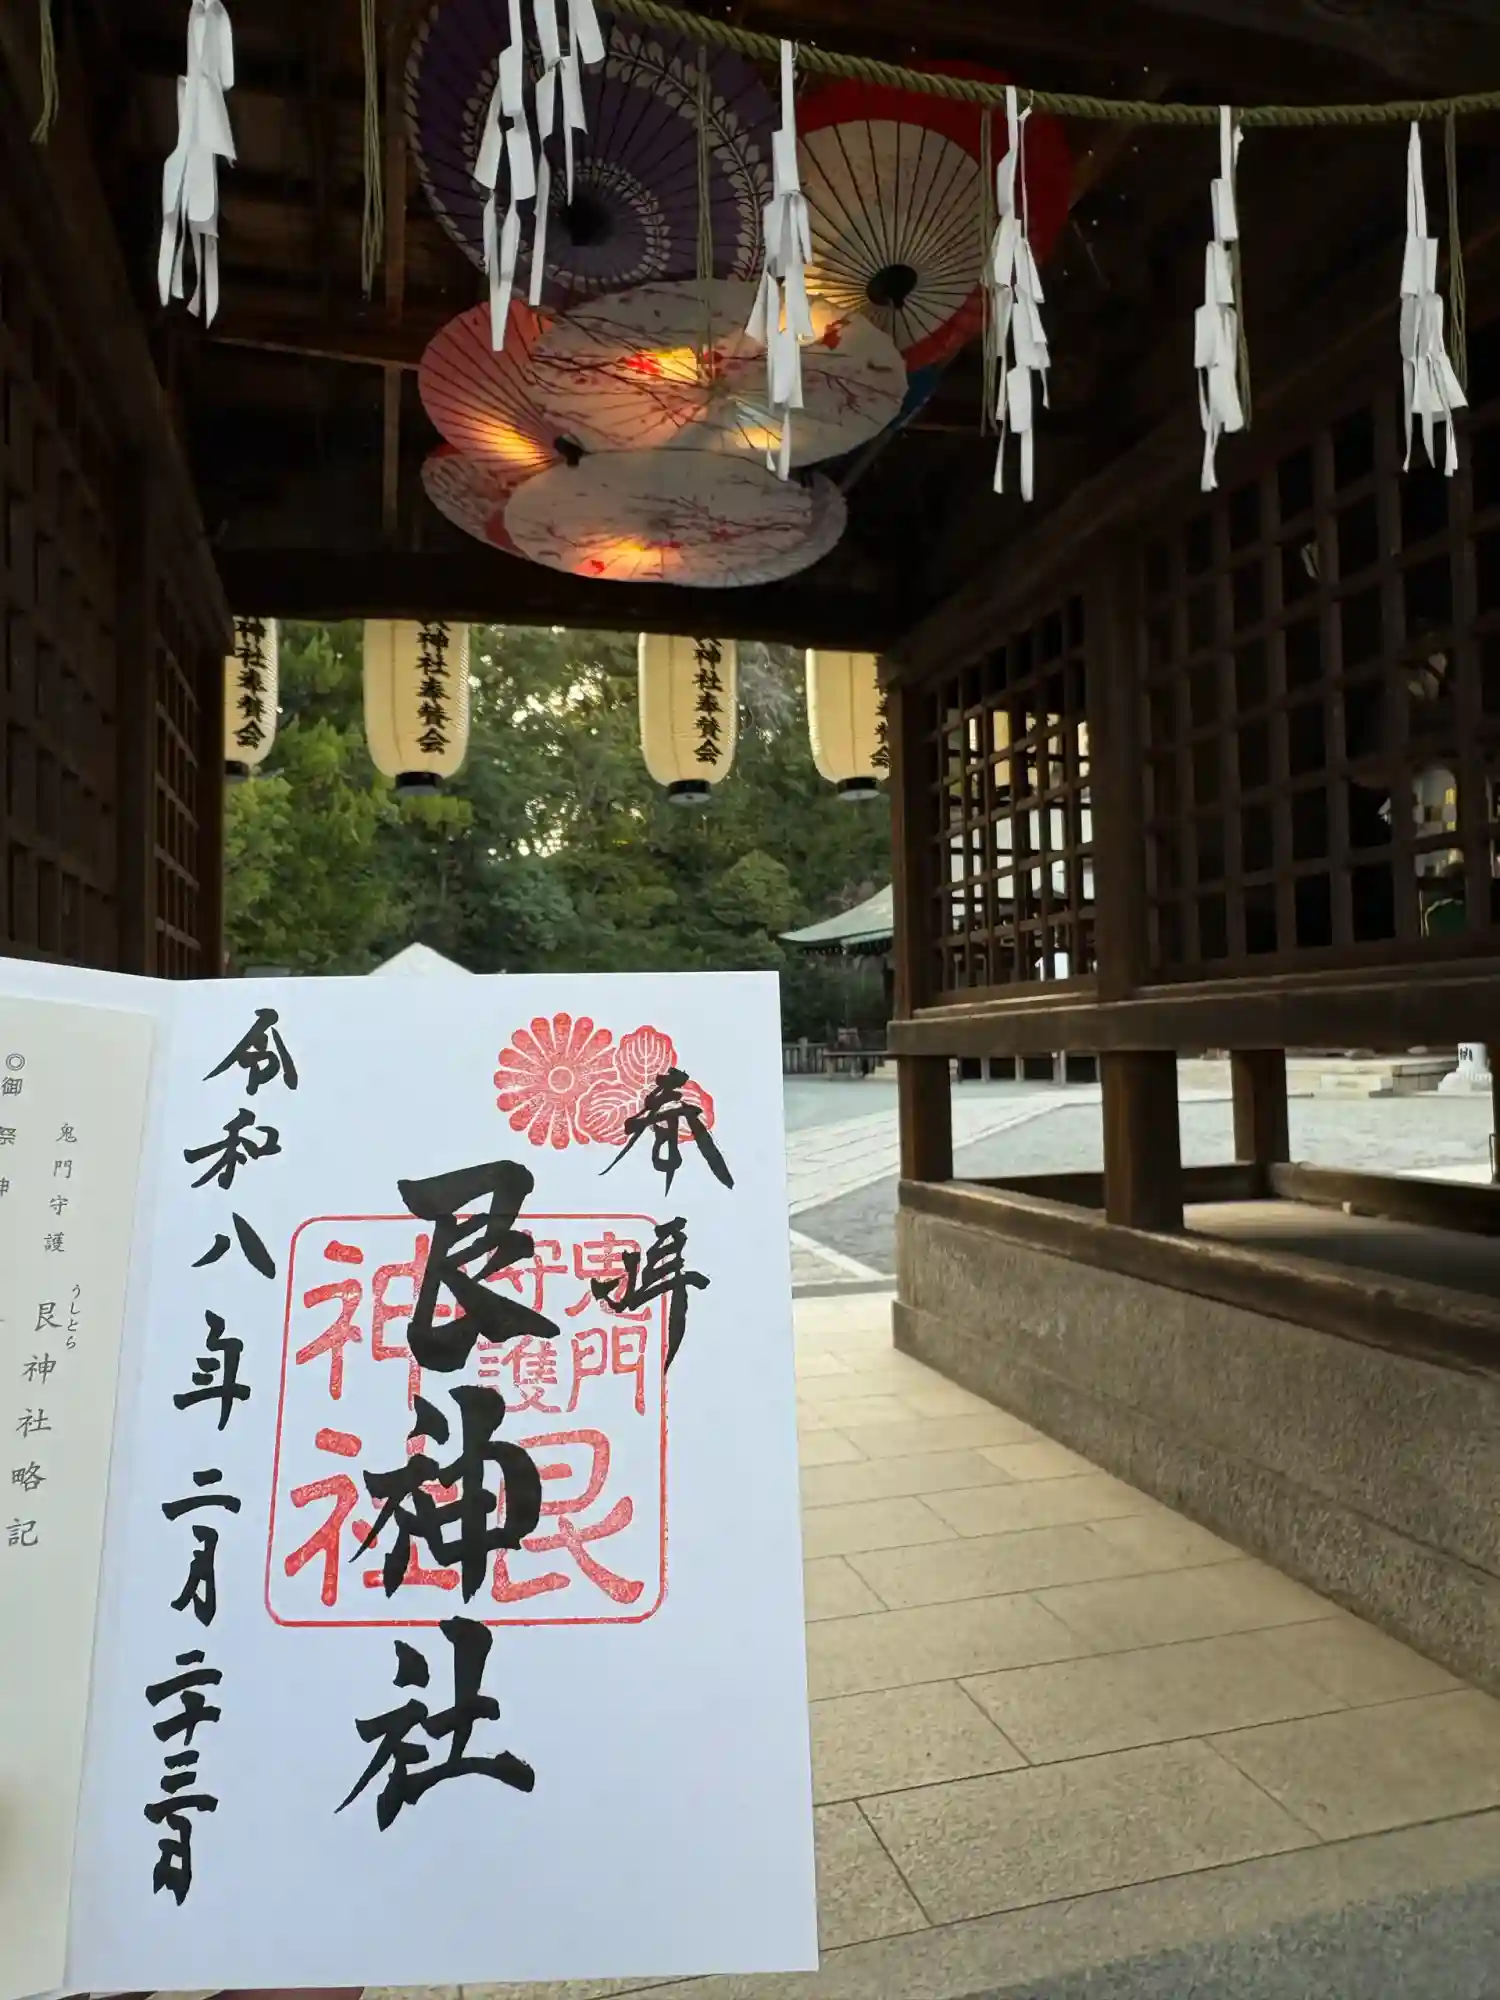 神社奉賛会
神社奉賛会
神社奉賛会
奉賛会
奉拝
鬼門
守護
艮
神社
艮神社
令和八年二月二十三日
鬼門守護
うしとら
艮神社略記
◎御祭神